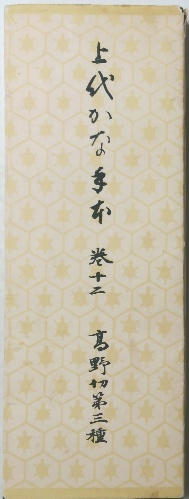 上代かな手本 巻十二 高野切第三種